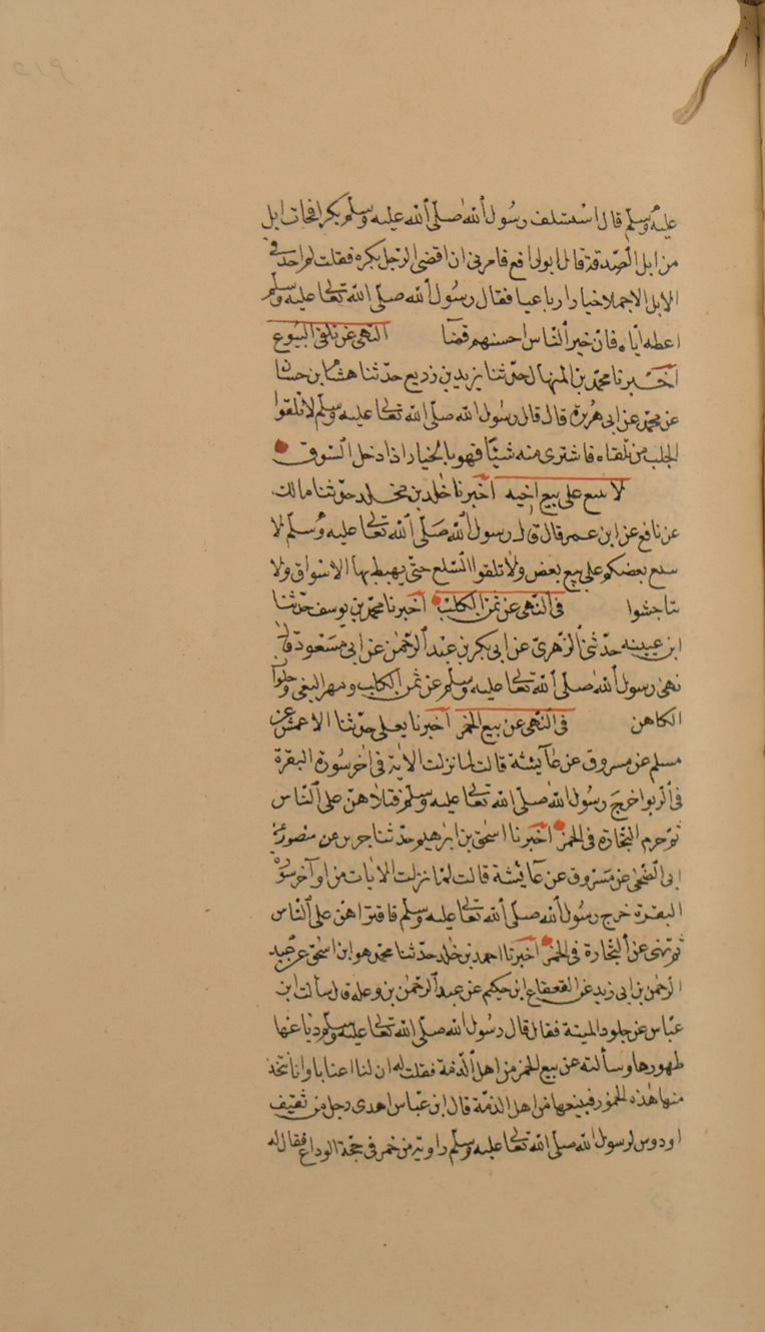 عليه وسلم قال استسلف رسول الله صلى الله عليه وسلم بكرا فجات ابل
من ابل الصدقة قال ابو رافع فامرنى ان اقضى الرجل بكره فقلت لم اجد فى
الابل الا جملا خيارا رباعيا فقال رسول الله صلى الله تعالى عليه وسلم
اعطه اياه فان خير الناس احسنهم قضآ النهى عن تلقى البيوع
اخبرنا محمد بن المنهال حدثنا يزيد بن زريع حدثنا هشام ابن حسان
عن محمد عن ابى هريرة قال قال رسول الله صلى الله تعالى عليه وسلم لا تلقوا
الجلب من تلقاه فاشترى منه شيئا فهو بالخيار اذا دخل السوق
لا يبيع على بيع اخيه اخبرنا خلد بن مخلد حدثنا مالك
عن نافع عن ابن عمر قال قال رسول الله صلى الله تعالى عليه وسلم لا
يبيع بعضكم على بيع بعض ولا تلقوا السلع حتى يهبط بها الاسواق ولا
تناجشوا فى النهى عن ثمن الكلب اخبرنا محمد بن يوسف حدثنا
ابن عيينه حدثنى الزهرى عن ابى بكر بن عبد الرحمن عن ابى مسعود قال
نهى رسول الله صلى الله تعالى عليه وسلم عن ثمن الكلب ومهر البغى وحلوان
الكاهن فى النهى عن بيع الخمر اخبرنا يعلى حدثنا الاعمش عن
مسلم عن مسروق عن عآيشة قالت لما نزلت الاية فى اخر سورة البقرة
فى الربوا خرج رسول الله صلى الله تعالى عليه وسلم فتلاهن على الناس
ثم حرم التجارة فى الخمر اخبرنا اسحق بن ابرهيم حدثنا جرير عن منصور عن
ابى الضحى عن مسروق عن عآئيشة قالت لما نزلت الايات من اوآخر سورة
البقرة خرج رسول الله صلى الله تعالى عليه وسلم فاقتراهن على الناس
ثم نهى عن التجارة فى الخمر اخبرنا احمد بن خلد حدثنا محمد هو ابن اسحق عن عبد
الرحمن بن ابى زيد عن القعقاع ابن حكيم عن عبد الرحمن بن وعله قال سألت ابن
عباس عن جلود الميتة فقال قال رسول الله صلى الله تعالى عليه وسلم دباغها
طهورها وسألته عن بيع الخمر من اهل الذمة فقلت له ان لنا اعنابا وانا نتخذ
منها هذه الخمور فنبيعها من اهل الذمة قال ابن عباس اهدى رجل من ثقيف
او دوس لرسول الله صلى الله تعالى عليه وسلم راوية من خمر فى حجة الوداع فقال له